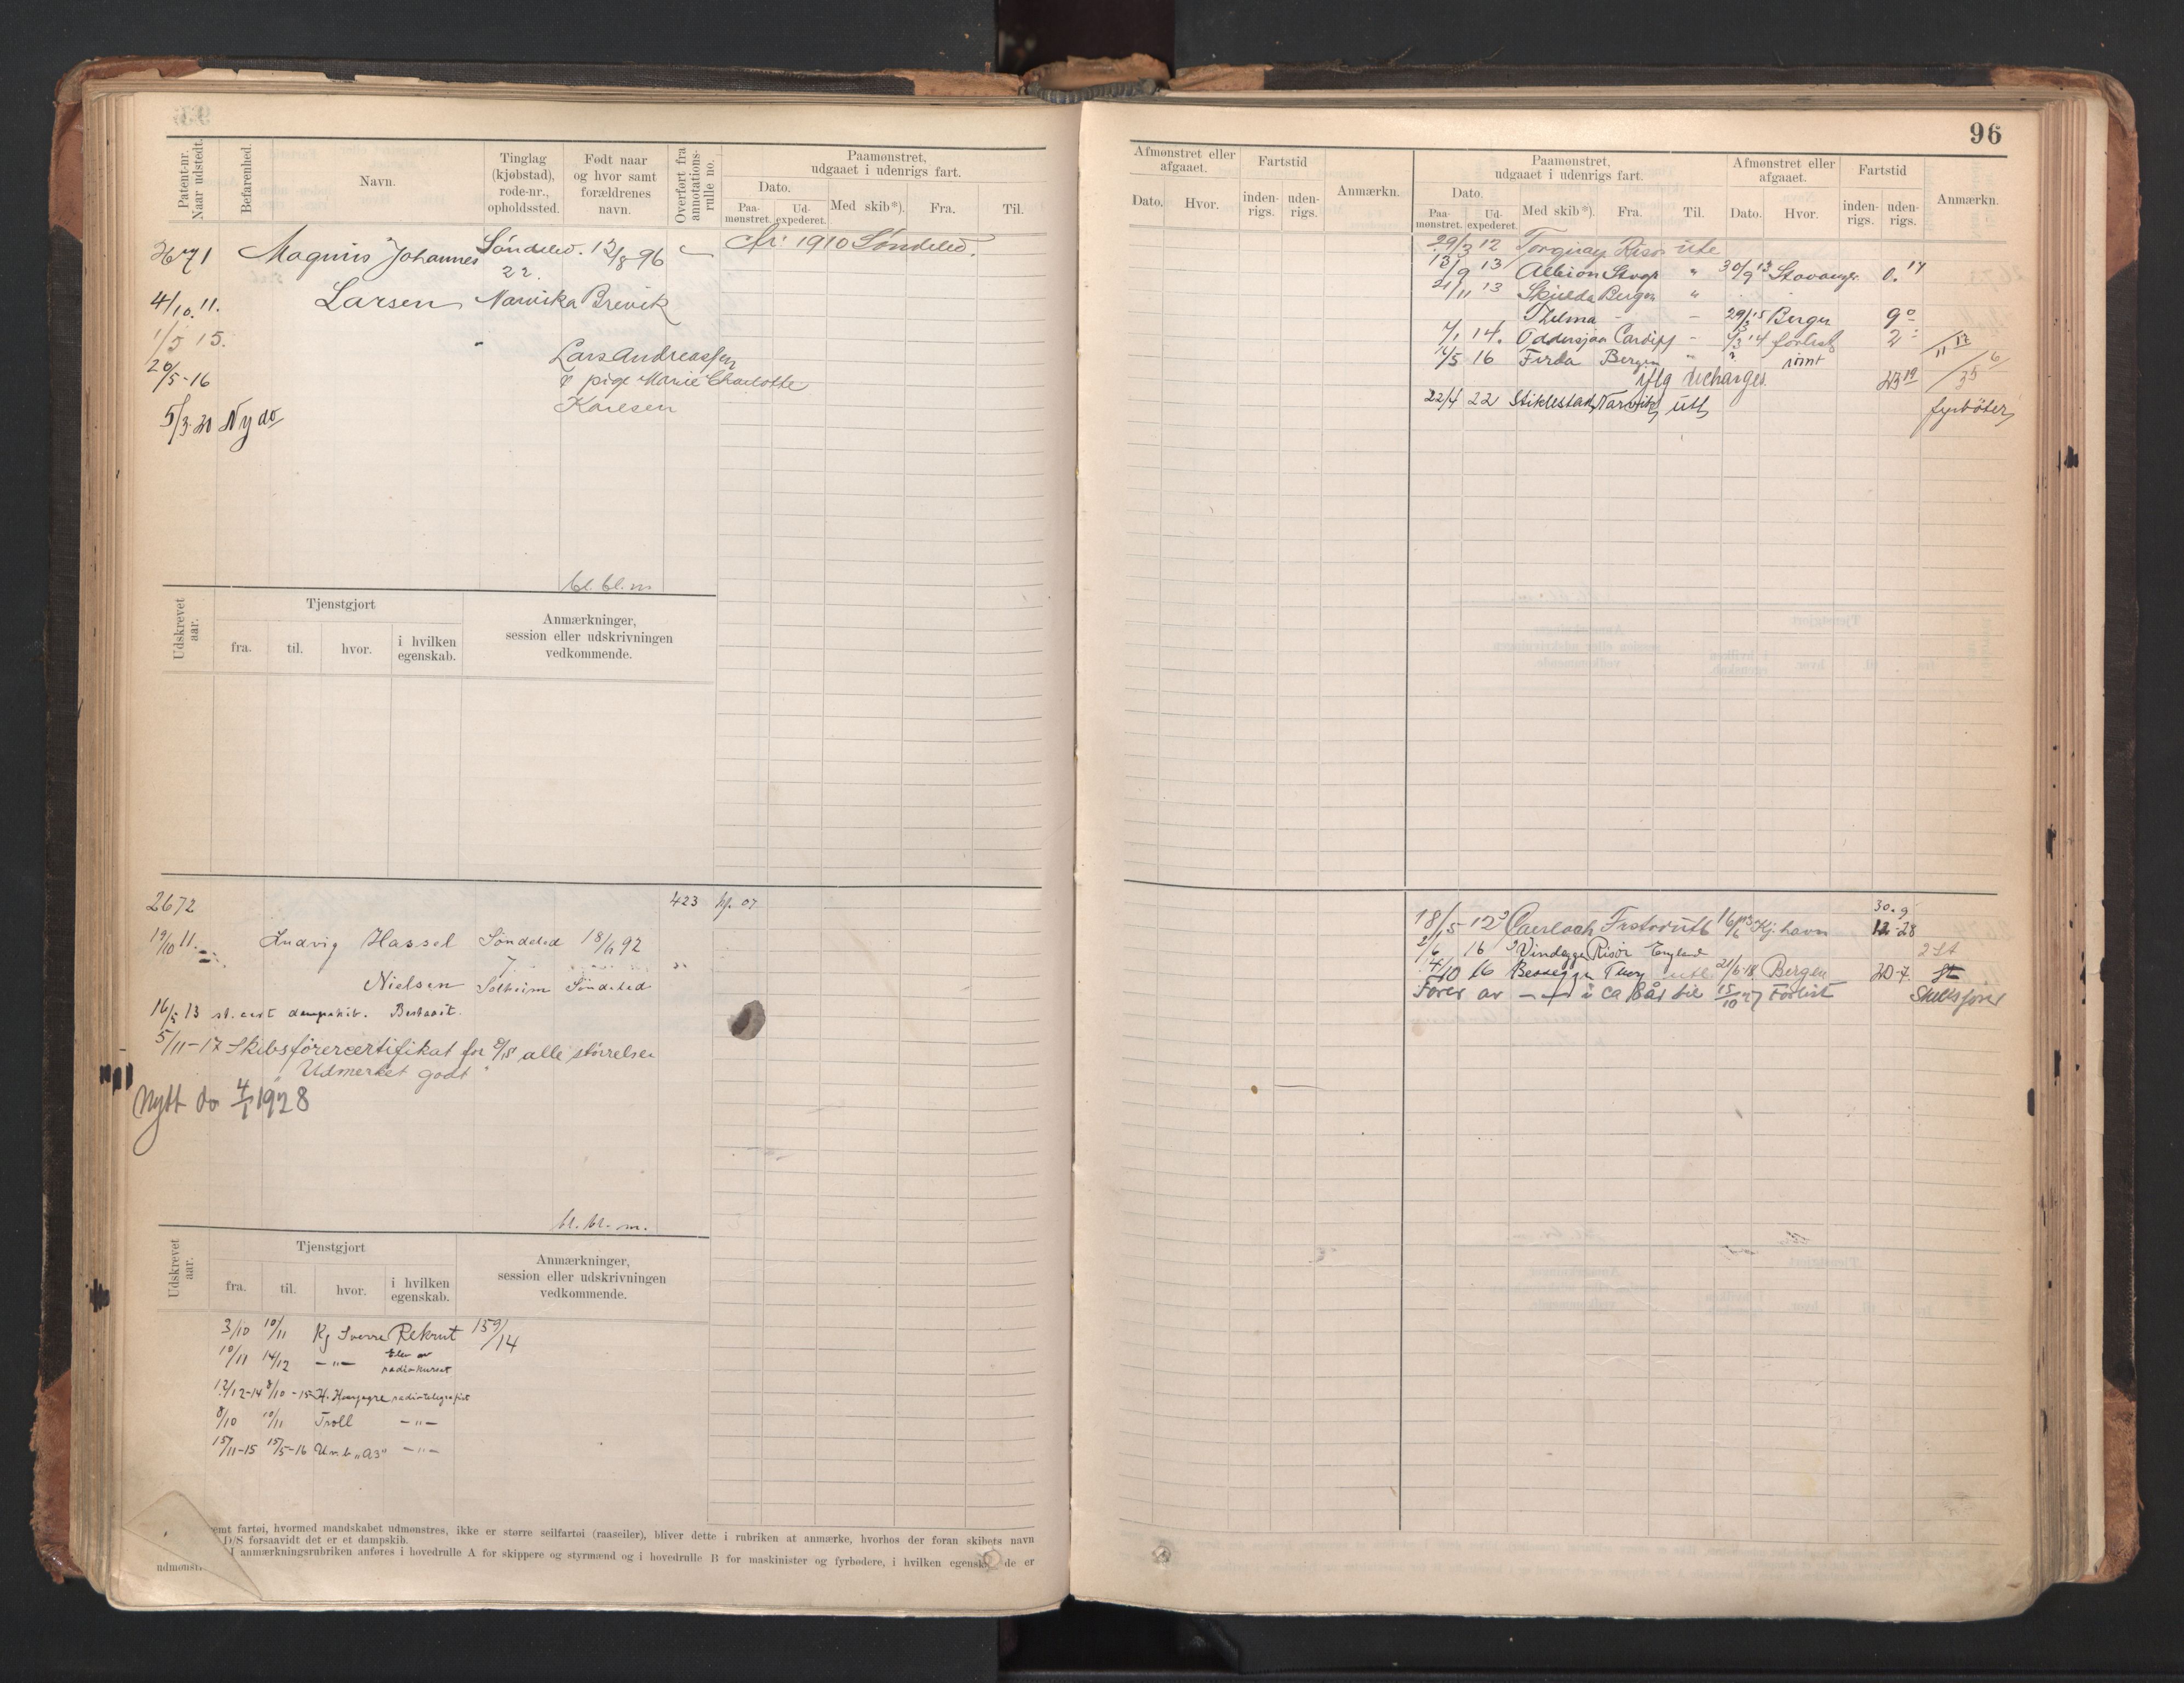 96
Patent-nr. Naar udstedt.
Befarenhed.
Navn.
Tinglag (kjøbstad), rode-nr., opholdssted.
Født naar og hvor samt forældrenes navn.
Overført fra annotations-rulle no.
Paamønstret, udgaaet i udenrigs fart.
Dato.
Paa-mønstret.
Ud-expederet.
Med skib*).
Fra.
Til.
2671
Magnus Johannes
Søndeled. 12/8 96
Kr: 1910 Søndeled.
22.
4/10. 11.
Larsen
Narvika Brevik
1/5 15.
Lars Andreassen
20/5-16
& pige Marie Charlotte
Karlsen
5/3. 20 Ny do
bl. bl. m.
Udskrevet aar.
Tjenstgjort
fra.
til.
hvor.
i hvilken egenskab.
Anmærkninger, session eller udskrivningen vedkommende.
2672
423
19/10 11.
Ludvig Hassel
Søndeled 18/11 92
7
Nielsen
Solheim Søndeled
16/5 13 st. cert dampskib. Bestaait.
5/11-17 Skibsførercertifikat for D/S alle størrelser
"Udmerket godt"
Nytt do 4/1 1928
bl. bl. m.
Udskrevet aar.
Tjenstgjort
fra.
til.
hvor.
i hvilken egenskab.
Anmærkninger, session eller udskrivningen vedkommende.
3/10 10/11 Kg Sverre Rekrut 159/14
10/11 14/12 -"- Elev av radiokurset
12/12-14 8/10-15 H. Haarfagre radiotelegrafist
8/10 10/11 Troll -"-
15/11-15 15/5-16 Un.b. "A3" -"-
emt fartøi, hvormed mandskabet udmønstres, ikke er større seilfartøi (raaseiler), bliver dette i rubriken at anmærke, hvorhos der foran skibets navn
D/S forsaavidt det er et dampskib.
I anmærkningsrubriken anføres i hovedrulle A for skippere og styrmænd og i hovedrulle B for maskinister og fyrbødere, i hvilken egensk de er
udmønstr
Afmønstret eller afgaaet.
Dato.
Hvor.
Fartstid
inden-rigs.
uden-rigs.
Anmærkn.
Paamønstret, udgaaet i udenrigs fart.
Dato.
Paa-mønstret.
Ud-expederet.
Med skib*).
Fra.
Til.
Afmønstret eller afgaaet.
Dato.
Hvor.
Fartstid
inden-rigs.
uden-rigs.
Anmærkn.
29/3 12 Torquay Risør ute
13/9 13 Albion Stvgr " 30/9 13 Stavanger 0. 17
21/11 13 Skjelda Bergen "
Thelma - - 29/3 15 Bergen 9 0
7/1 14. Oddersjaa Cardiff - 14 forlist
11/5 16 Firda Bergen " ? rømt
iflg discharges 23 19
22/4 22 Stiklestad Narvik utl fyrbøter
30. 9
18/5 12 Caerloch Frstad utl 16/6 13 Kj.havn 12-28
2/6 16 Vindeggen Risør England 2 st
4/10 16 Besseggen Tbrg utl 21/6-18 Bergen 20-7
Fører av -"- i ca 8 år til 15/10 27 Forlist Skibsfører